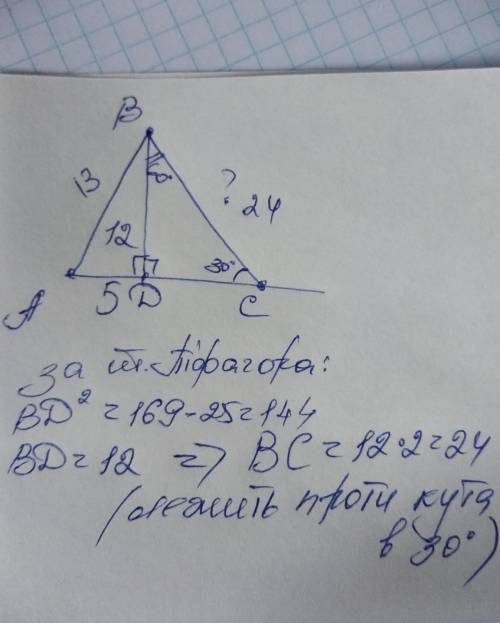 B
13
60°
?
24
12
30°
A
5
D
C
за т. Піфагора:
BD² = 169 - 25 = 144
BD = 12 => BC = 12 · 2 = 24
(лежить проти кута
в 30°)